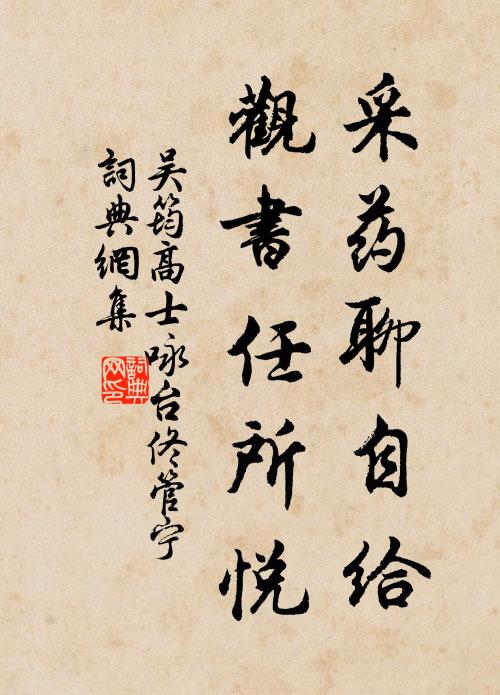 采药聊自给
觀書任所悦
吴筠高士咏台佟管宁
詞典網集
詞典网印